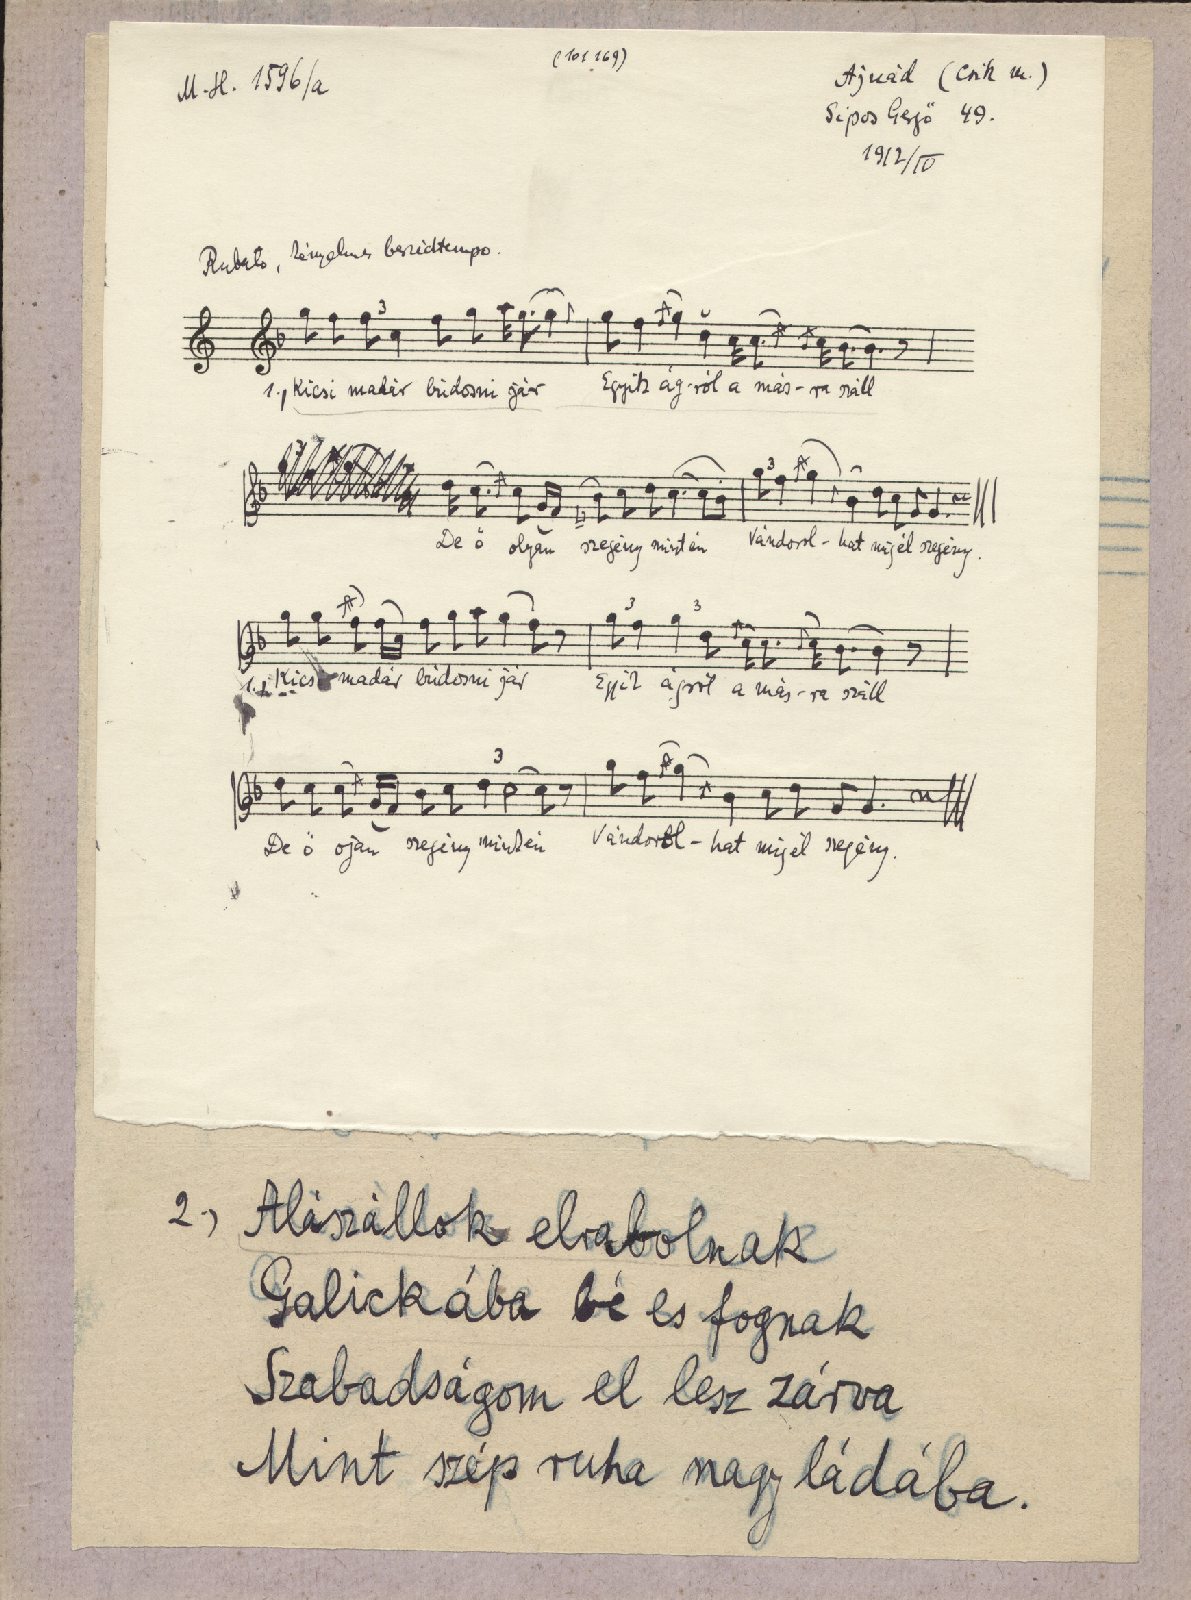 M.H. 1596/a
(101 169)
Ajnád (Csik m.)
Sipos Gergő 49.
1912/IV
Rubato, kényelmes beszédtempo.
3
1., Kicsi madár búdosni jár Egyik ág-ról a más-ra száll
3
De ő olyan szegény mint én Vándorol-hat míjél szegény.
3 3
1., Kicsi madár búdosni jár Egyik ágról a más-ra száll
3
De ő oján szegény mint én Vándorol-hat míjél szegény.
2., Alászállok elrabolnak
Galickába bé es fognak
Szabadságom el lesz zárva
Mint szép ruha nagy ládába.